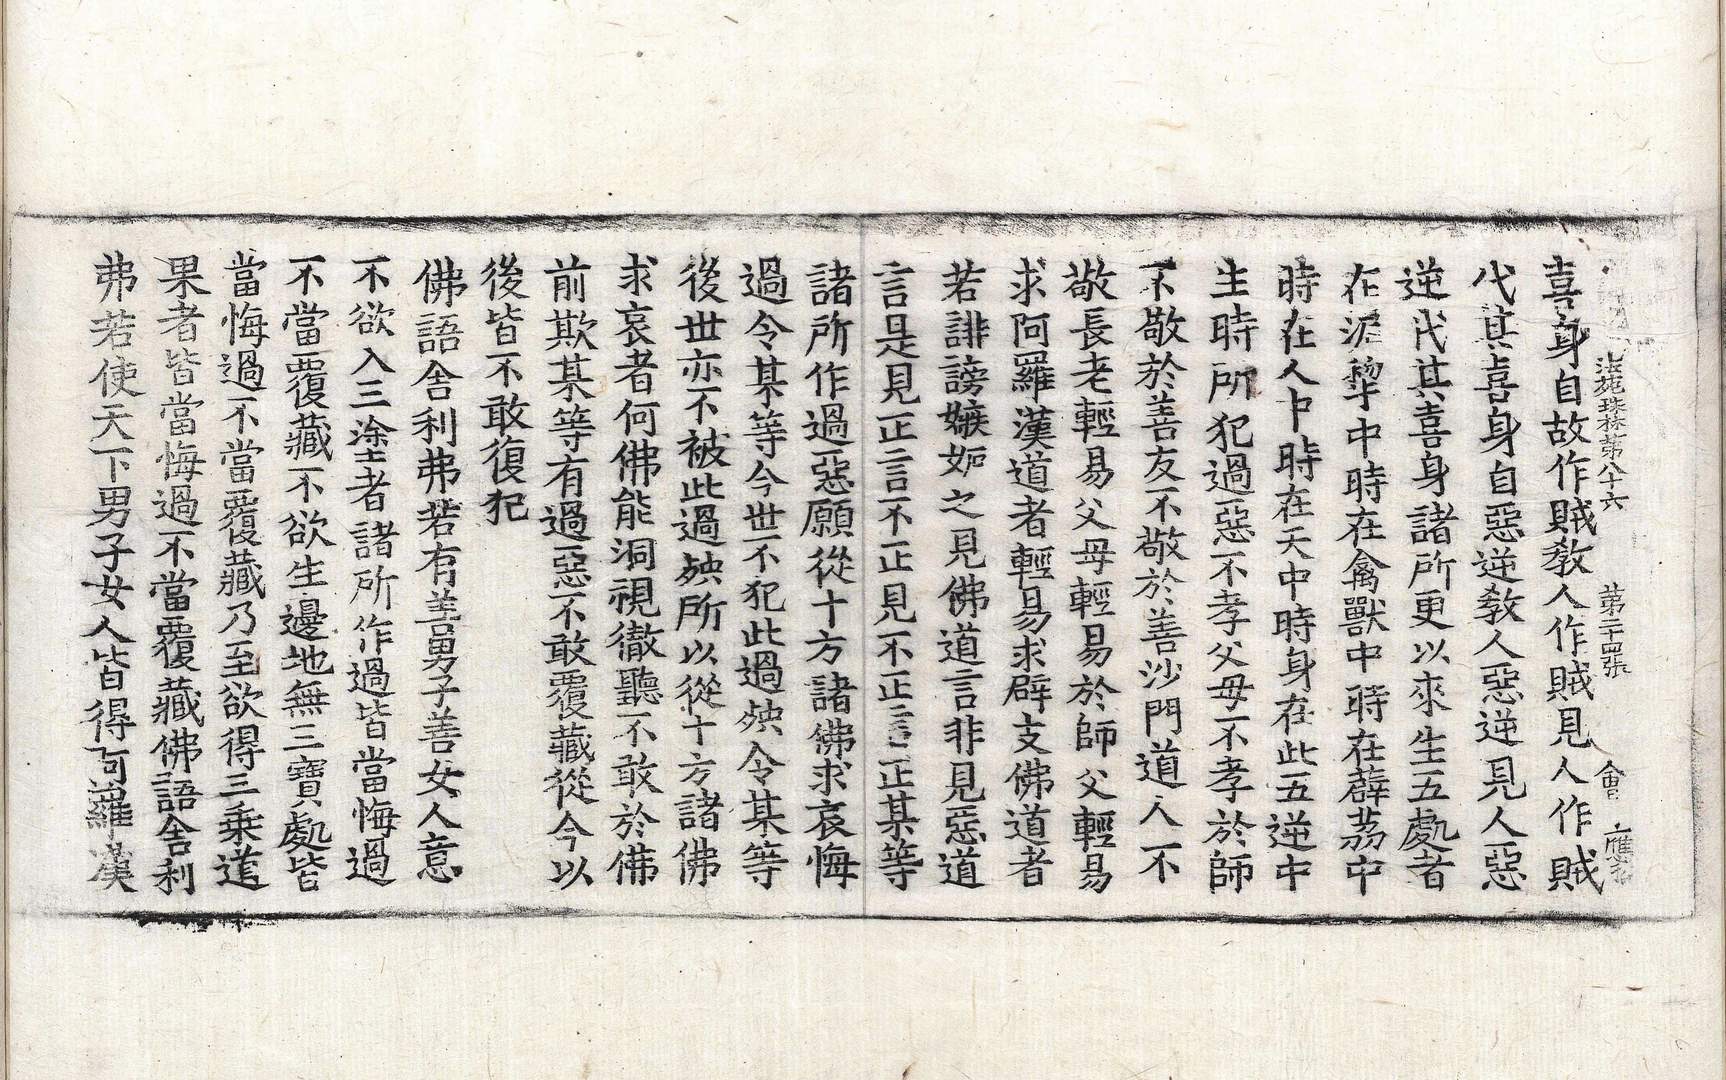 法苑珠林第八十六 第二十四張 會 應名
喜身自故作賊教人作賊見人作賊
代其喜身自惡逆教人惡逆見人惡
逆代其喜身諸所更以來生五處者
在泥犂中時在禽獸中時在薜荔中
時在人中時在天中時身在此五逆中
生時所犯過惡不孝父母不孝於師
不敬於善友不敬於善沙門道人不
敬長老輕易父母輕易於師父輕易
求阿羅漢道者輕易求辟支佛道者
若誹謗嫉妬之見佛道言非見惡道
言是見正言不正見不正言正某等
諸所作過惡願從十方諸佛求哀悔
過令某等今世不犯此過殃令某等
後世亦不被此過殃所以從十方諸佛
求哀者何佛能洞視徹聽不敢於佛
前欺某等有過惡不敢覆藏從今以
後皆不敢復犯
佛語舍利弗若有善男子善女人意
不欲入三塗者諸所作過皆當悔過
不當覆藏不欲生邊地無三寶處皆
當悔過不當覆藏乃至欲得三乘道
果者皆當悔過不當覆藏佛語舍利
弗若使天下男子女人皆得阿羅漢